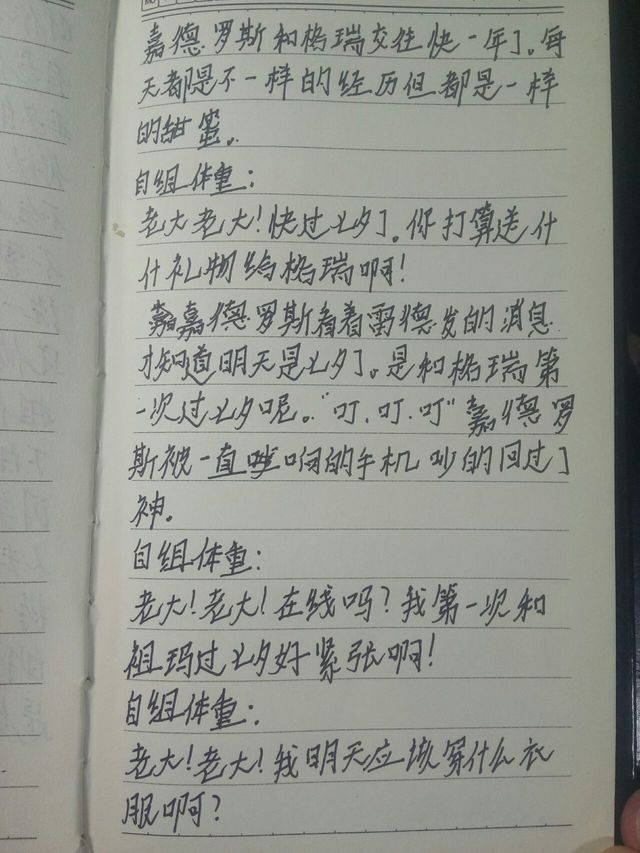 嘉德罗斯和格瑞交往快一年了。每
天都是不一样的经历但都是一样
的甜蜜。
自组体重：
老大老大！快过七夕了。你打算送什
什礼物给格瑞啊！
嘉嘉德罗斯看着雷德发的消息
才知道明天是七夕了。是和格瑞第
一次过七夕呢。“叮，叮，叮”嘉德罗
斯被一直响的手机吵的回过了
神。
自组体重：
老大！老大！在线吗？我第一次和
祖玛过七夕好紧张啊！
自组体重：
老大！老大！我明天应该穿什么衣
服啊？